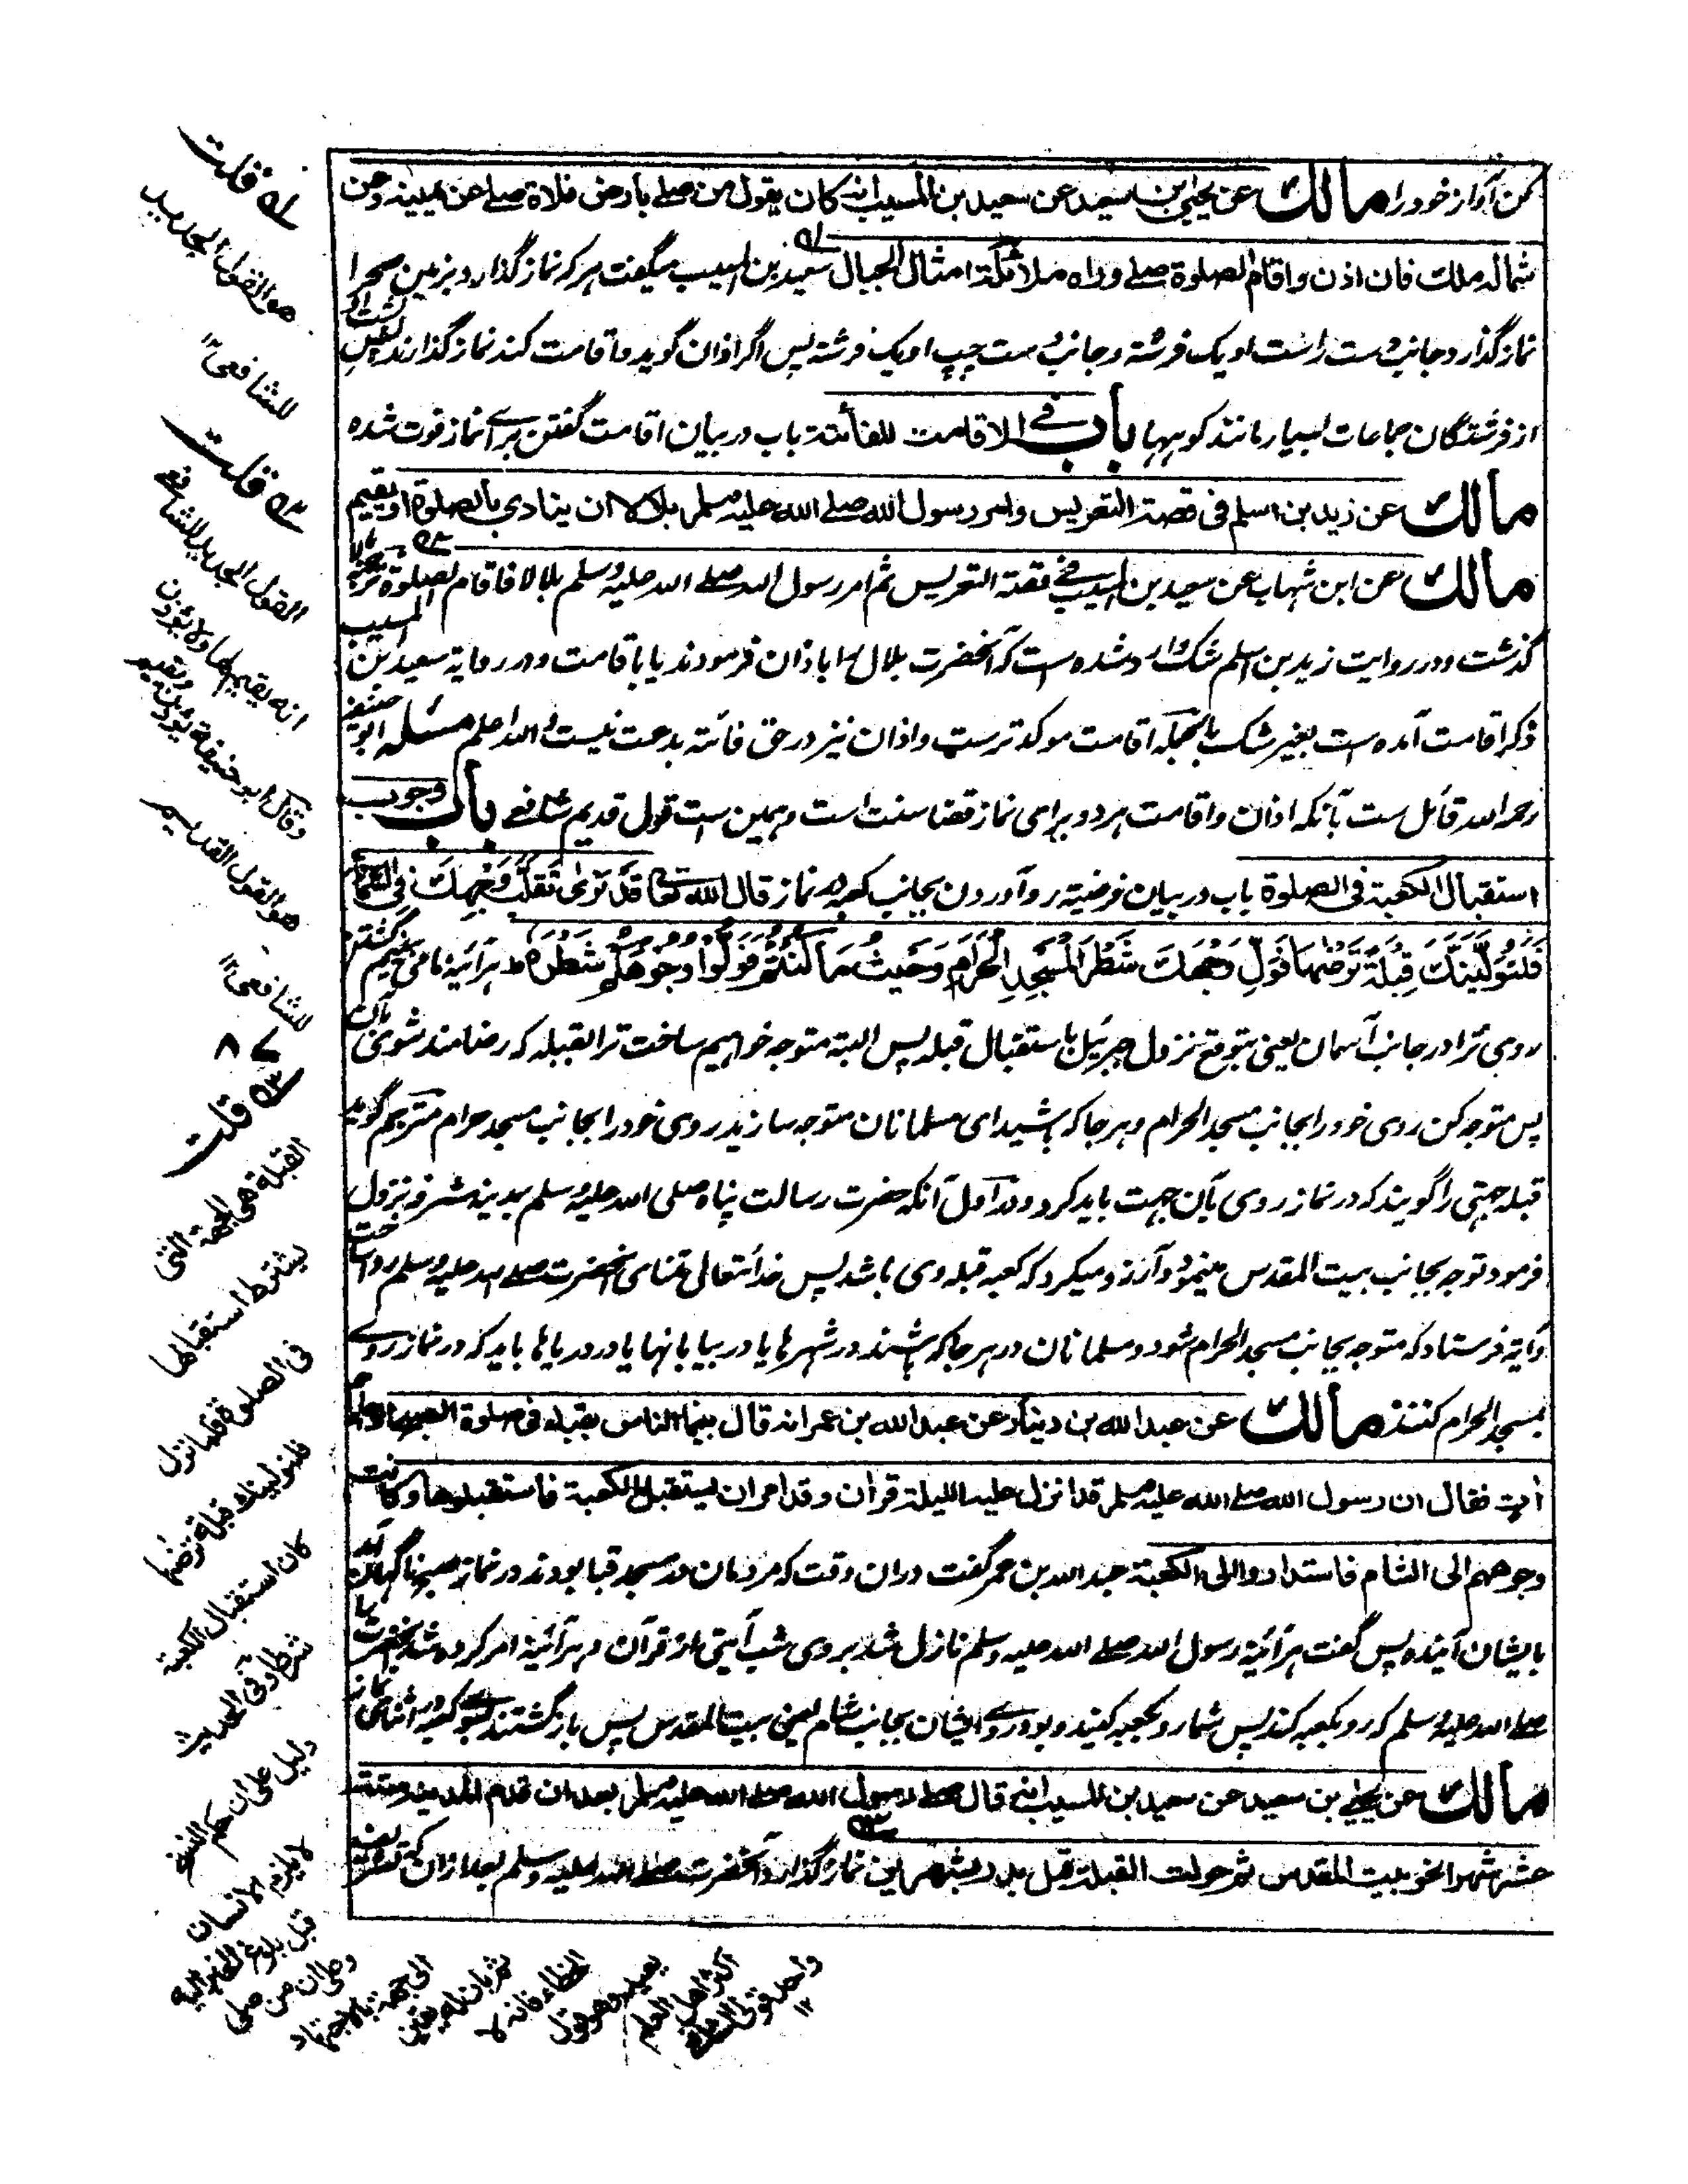 کن آواز خود را مالك عن يحيى بن سعيد عن سعيد بن المسيب انه كان يقول من صلے بارض فلاة صلے عن يمينه وعن
شماله ملك فان اذن واقام الصلوة صلے وراه ملائكة امثال الجبال سعید بن المسیب میگفت ہر کہ نماز گذارد بزمین صحرا
نماز گذارد و جانب دست راست او یک فرشتہ و جانب دست چپ او یک فرشتہ پس اگر اذان گوید و اقامت کند نماز گذارند پس پشت او
از فرشتگان جماعات بسیار مانند کوہہا باب فے الاقامت للفائتة باب در بیان اقامت گفتن براے نماز فوت شدہ
مالك عن زيد بن اسلم فى قصة التعريس وامر رسول الله صلے الله عليه وسلم بلالا ان ينادي بالصلوة او يقيم
مالك عن ابن شہاب عن سعید بن المسیب فے قصة التعریس ثم امر رسول اللہ صلے اللہ علیہ وسلم بلالا فاقام الصلوة ترجمہ بالا
گذشت و در روایت زید بن اسلم شک وارد شدہ است کہ آنحضرت بلال را باذان فرمودند یا باقامت و در روایۃ سعید ابن المسیب
ذکر اقامت آمدہ است بغیر شک بالجملہ اقامت موکد ترست و اذان نیز در حق فائتہ بدعت نیست و اللہ اعلم مسئلہ ابو حنیفہ
رحمہ اللہ قائل ست بآنکہ اذان و اقامت ہر دو برای نماز قضا سنت است و ہمین ست قول قدیم شافعے باب وجوب
استقبال الكعبة فى الصلوة باب در بیان فرضیتہ رو آوردن بجانب کعبہ در نماز قال الله تعا قَدْ نَرٰى تَقَلُّبَ وَجْهِكَ فِى السَّمَآءِ
فَلَنُوَلِّيَنَّكَ قِبْلَةً تَرْضٰهَا فَوَلِّ وَجْهَكَ شَطْرَ الْمَسْجِدِ الْحَرَامِ وَحَيْثُ مَا كُنْتُمْ فَوَلُّوْا وُجُوْهَكُمْ شَطْرَهٗ ط ہر آئینہ ما می بینیم گشتن
روی ترا در جانب آسمان یعنی بتوقع نزول جبرئیل باستقبال قبلہ پس البتہ متوجہ خواہیم ساخت ترا بقبلہ کہ رضامند شوی بآن
پس متوجہ کن روی خود را بجانب مسجد الحرام و ہر جا کہ باشید ای مسلمانان متوجہ سازید روی خود را بجانب مسجد حرام مترجم گوید
قبلہ جہتی را گویند کہ در نماز روی بآن جہت باید کرد و در اول آنکہ حضرت رسالت پناہ صلی اللہ علیہ وسلم بمدینہ مشرفہ نزول
فرمود توجہ بجانب بیت المقدس مینمود و آرزو میکرد کہ کعبہ قبلہ وی باشد پس خدائتعالی تمنای آنحضرت صلے اللہ علیہ وسلم روا ساخت
و آیۃ فرستاد کہ متوجہ بجانب مسجد الحرام شود و مسلمانان در ہر جا کہ باشند در شہرہا یا در بیابانہا یا در دریاہا باید کہ در نماز روے
بمسجد الحرام کنند مالك عن عبد الله بن دينار عن عبد الله بن عمر انه قال بينما الناس بقباء فى صلوة الصبح اذ جاءهم
آت فقال ان رسول الله صلے الله عليه وسلم قد انزل عليه الليلة قرآن وقد امر ان يستقبل الكعبة فاستقبلوها وكانت
وجوههم الى الشام فاستداروا الى الكعبة عبد اللہ بن عمر گفت دران وقت کہ مردمان در مسجد قبا بودند در نماز صبح ناگہان آمد
بایشان آیندہ پس گفت ہر آئینہ رسول اللہ صلے اللہ علیہ وسلم نازل شد بروی شب آیتی از قرآن و ہر آئینہ امر کردہ شد آنحضرت را
صلے اللہ علیہ وسلم کہ رو بکعبہ کند پس شما رو بکعبہ کنید و بود روے ایشان بجانب شام یعنی بیت المقدس پس باز گشتند بسوے کعبہ در اثنای نماز
مالك عن يحيے بن سعيد عن سعيد بن المسيب انه قال صلے رسول الله صلے الله عليه وسلم بعد ان قدم المدينة ستة
عشر شهرا نحو بيت المقدس ثم حولت القبلة قبل بدر بشهرين نماز گذارد آنحضرت صلے اللہ علیہ وسلم بعد ازان کہ تشریف
لہ قلت
هو القول الجديد
للشافعى ١٢
قلت
القول الجديد للشافعے
انه يقيم لها ولا يؤذن
وقال ابو حنيفة يؤذن ويقيم
هو القول القديم
للشافعى ١٢
قلت
القبلة هى الجهة التى
يشترط استقبالها
فى الصلوة فلما نزل
فلنولينك قبلة ترضها
كان استقبال الكعبة
شرطا وفى الحديث
دليل على ان حكم النسخ
لا يلزم الانسان
قبل بلوغ الخبر اليه
وعلى ان من صلى
الى جهة بالاجتهاد
ثم بان له يقين
الخطاء فانه لا
يعيد وهو قول
اكثر اهل العلم
١٢